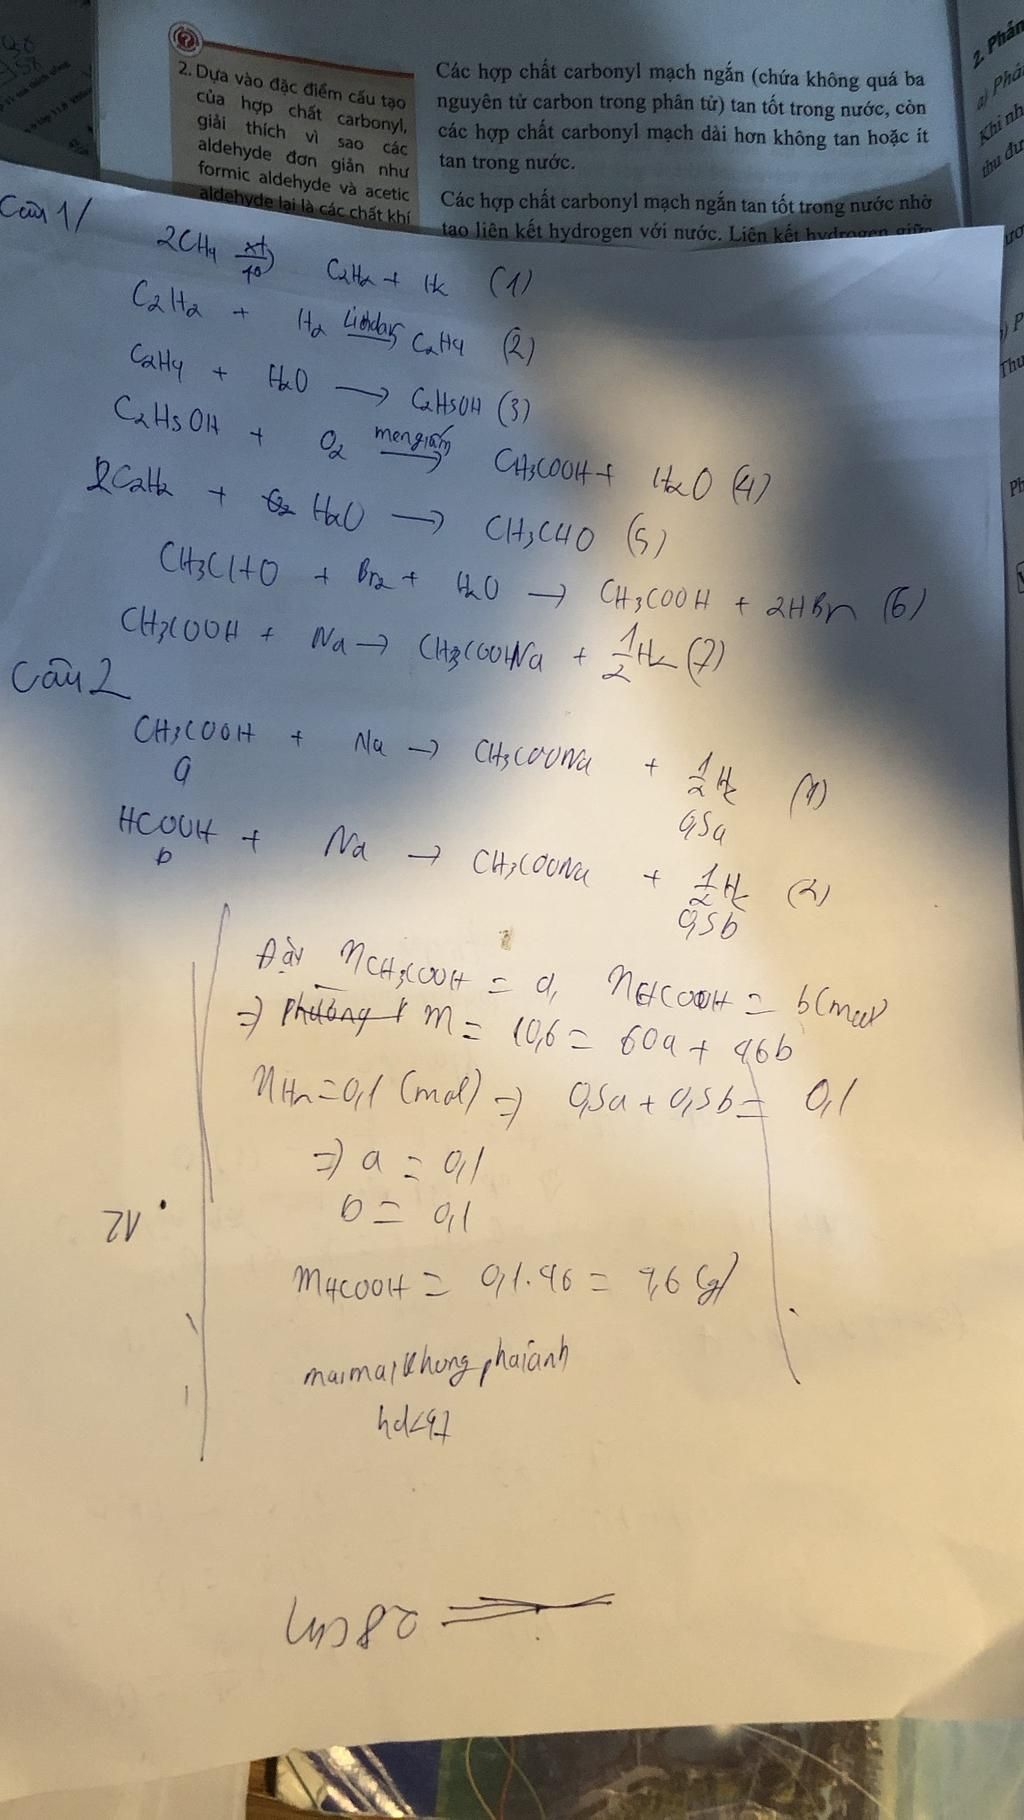 2. Dựa vào đặc điểm cấu tạo
của hợp chất carbonyl,
giải thích vì sao các
aldehyde đơn giản như
formic aldehyde và acetic
aldehyde lại là các chất khí
Các hợp chất carbonyl mạch ngắn (chứa không quá ba
nguyên tử carbon trong phân tử) tan tốt trong nước, còn
các hợp chất carbonyl mạch dài hơn không tan hoặc ít
tan trong nước.
Các hợp chất carbonyl mạch ngắn tan tốt trong nước nhờ
tạo liên kết hydrogen với nước. Liên kết hydrogen giữa
2. Phản
a) Phả
Khi nh
thu đư
Câu 1/
2CH4 xt t° C2H2 + H2 (1)
C2H2 + H2 Lindlar → C2H4 (2)
C2H4 + H2O → C2H5OH (3)
C2H5OH + O2 men giấm → CH3COOH + H2O (4)
C2H2 + H2O → CH3CHO (5)
CH3CHO + Br2 + H2O → CH3COOH + 2HBr (6)
CH3COOH + Na → CH3COONa + 1/2 H2 (7)
Câu 2
CH3COOH + Na → CH3COONa + 1/2 H2 (1)
a 0,5a
HCOOH + Na → CH3COONa + 1/2 H2 (2)
b 0,5b
Đặt nCH3COOH = a, nHCOOH = b (mol)
=> Phương t m = 10,6 = 60a + 46b
nH2 = 0,1 (mol) => 0,5a + 0,5b = 0,1
=> a = 0,1
b = 0,1
mHCOOH = 0,1.46 = 4,6 (g)
12
mai mai khong phai anh